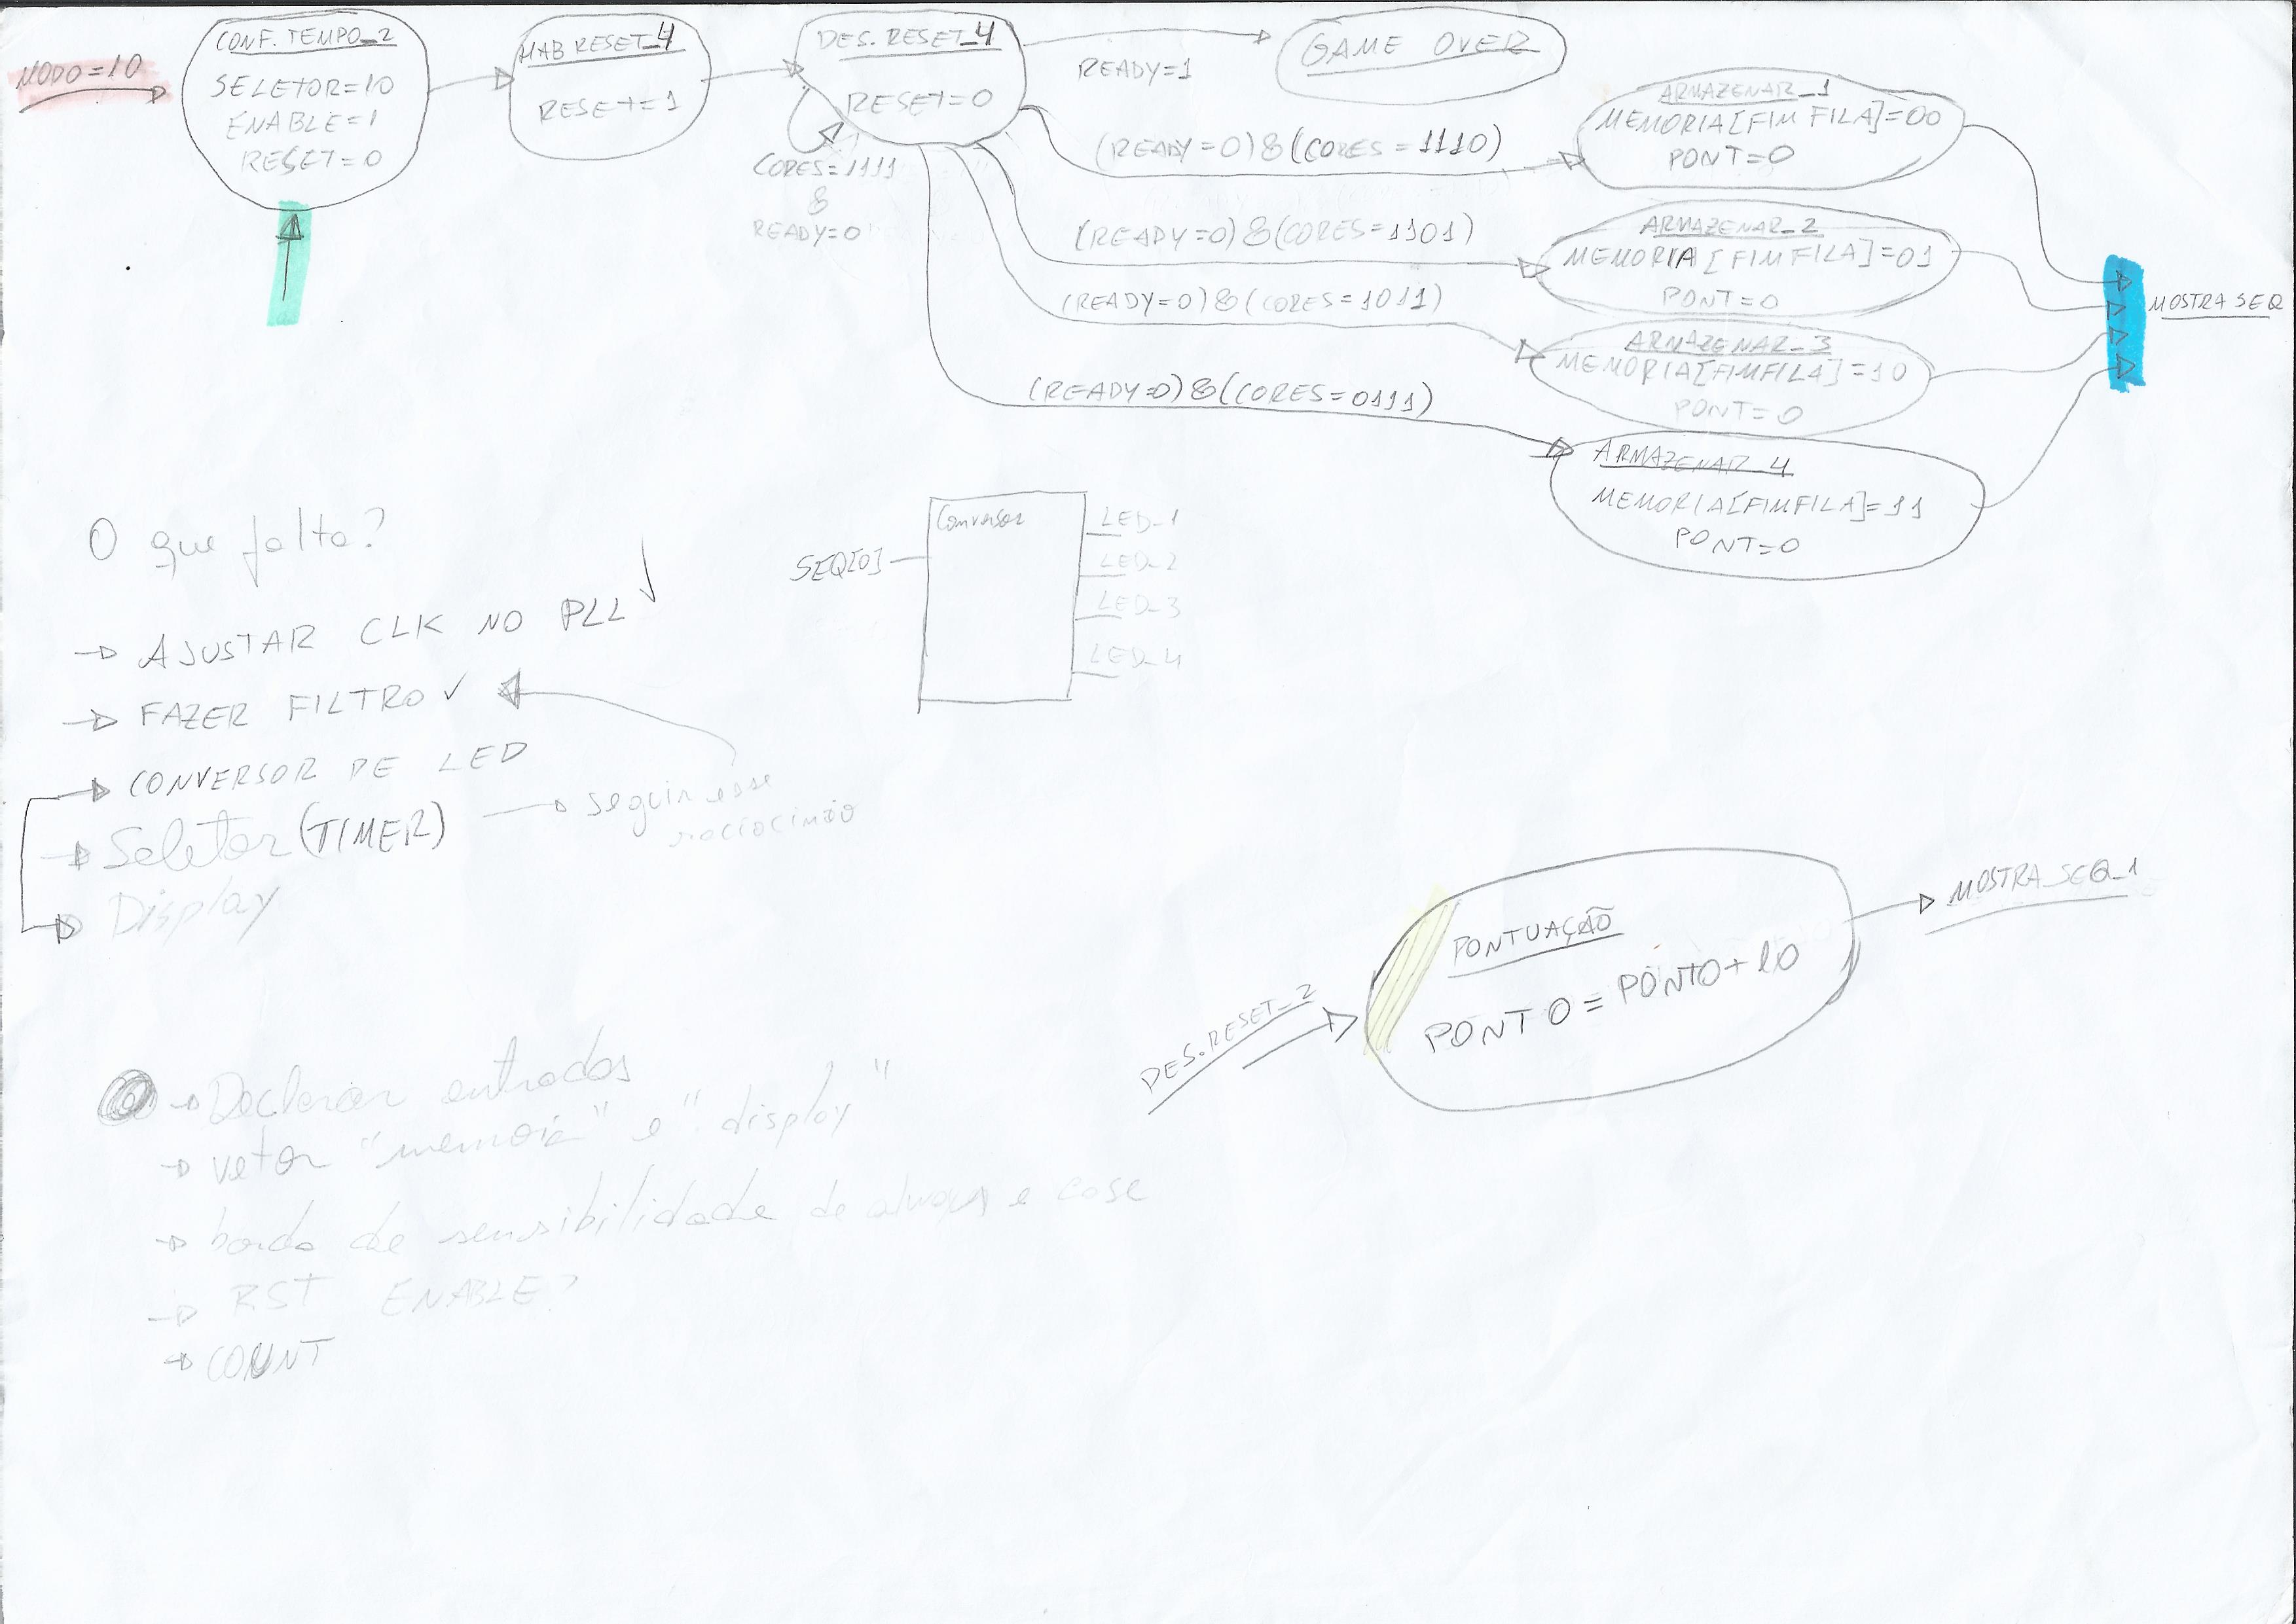 MODO=10
CONF. TEMPO_2
SELETOR=10
ENABLE=1
RESET=0
HAB RESET_4
RESET=1
DES. RESET_4
RESET=0
CORES=1111
&
READY=0
READY=1
GAME OVER
(READY=0)&(CORES=1110)
ARMAZENAR_1
MEMORIA[FIMFILA]=00
PONT=0
(READY=0)&(CORES=1101)
ARMAZENAR_2
MEMORIA[FIMFILA]=01
PONT=0
(READY=0)&(CORES=1011)
ARMAZENAR_3
MEMORIA[FIMFILA]=10
PONT=0
(READY=0)&(CORES=0111)
ARMAZENAR_4
MEMORIA[FIMFILA]=11
PONT=0
MOSTRA SEQ
O que falta?
→ AJUSTAR CLK NO PLL ✓
→ FAZER FILTRO ✓
→ CONVERSOR DE LED
→ Seletor (TIMER) → seguir esse
raciocinio
→ Display
SEQ[0]
Conversor
LED_1
LED_2
LED_3
LED_4
DES.RESET_2
PONTUAÇÃO
PONTO = PONTO+10
MOSTRA_SEQ_1
→ Declarar entradas
→ vetor "memoria" e "display"
→ borda de sensibilidade de always e case
→ RST ENABLE?
→ COUNT